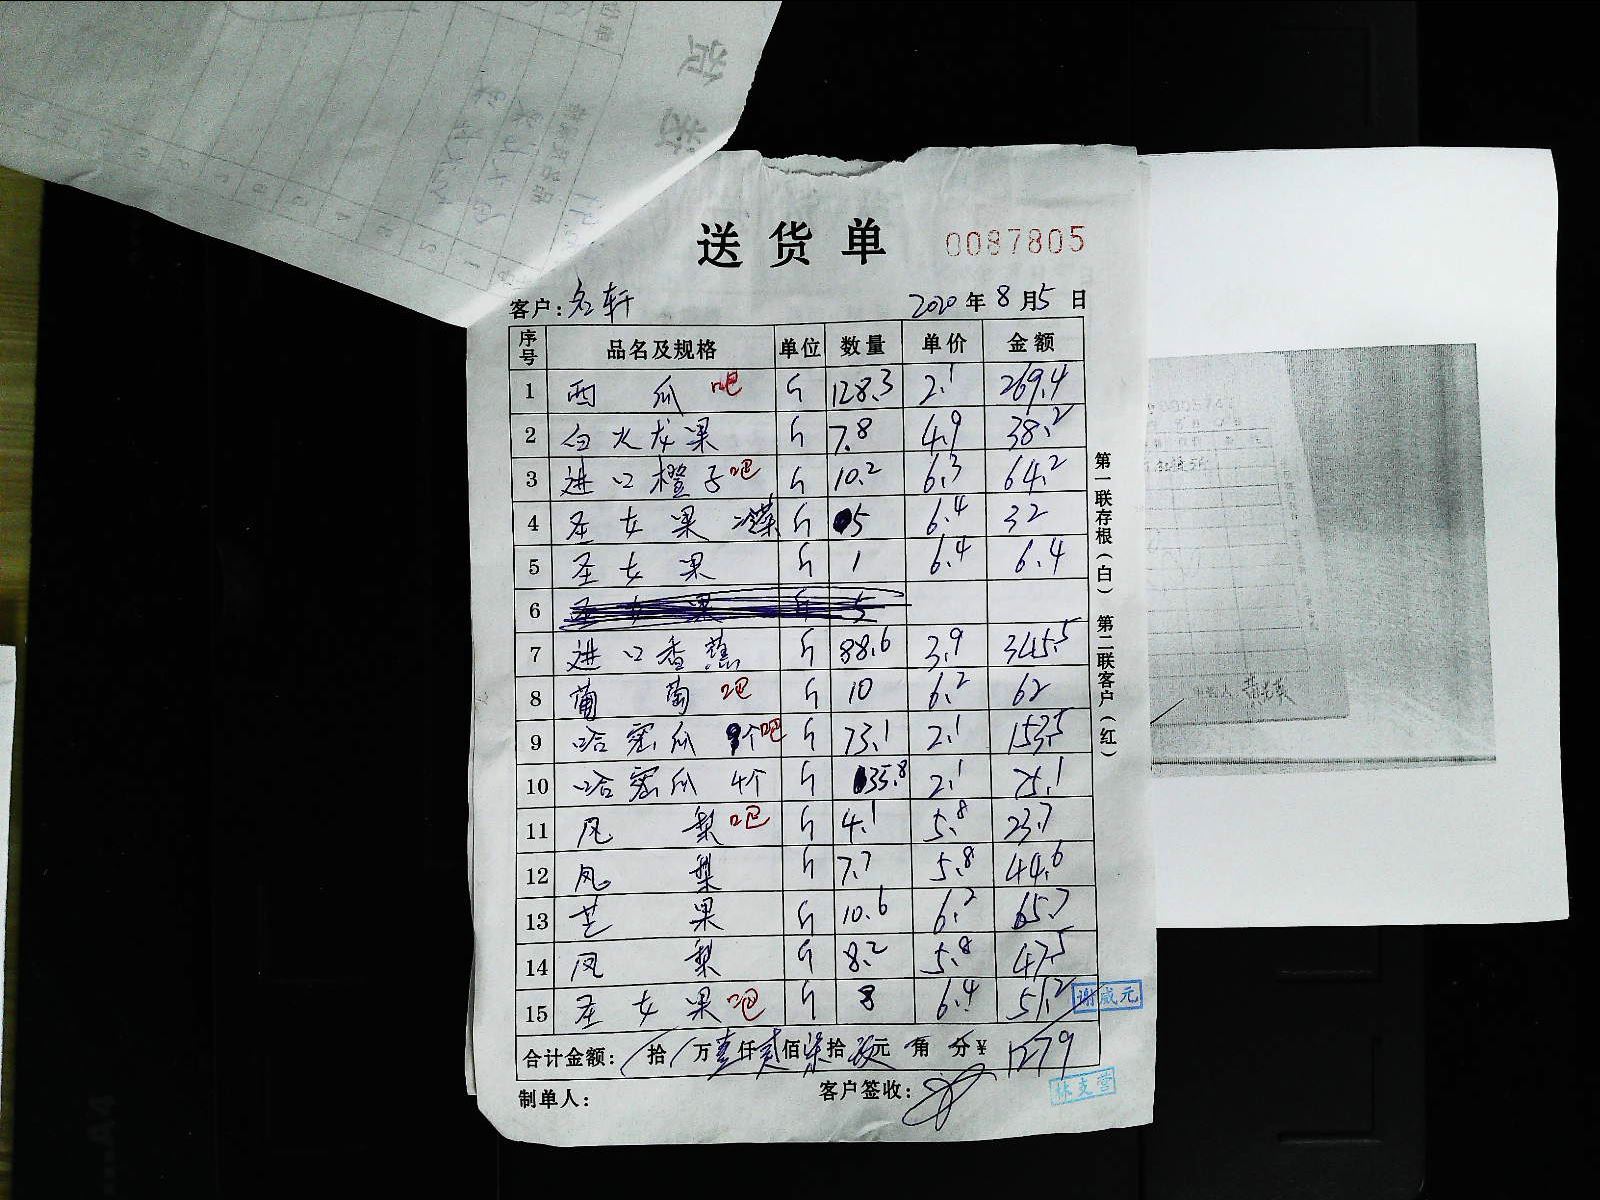 送货单 0087805
客户: 名轩 2020年8月5日
序号 品名及规格 单位 数量 单价 金额
1 西瓜 吧 斤 128.3 2.1 269.4
2 白火龙果 斤 7.8 4.9 38.2
3 进口橙子 吧 斤 10.2 6.3 64.2
4 圣女果 冷菜 斤 5 6.4 32
5 圣女果 斤 1 6.4 6.4
6 圣女果 斤 5
7 进口香蕉 斤 88.6 3.9 345.5
8 葡萄 吧 斤 10 6.2 62
9 哈密瓜 9个 吧 斤 73.1 2.1 153.5
10 哈密瓜 4个 斤 35.8 2.1 75.1
11 凤梨 吧 斤 4.1 5.8 23.7
12 凤梨 斤 7.7 5.8 44.6
13 芒果 斤 10.6 6.2 65.7
14 凤梨 斤 8.2 5.8 47.5
15 圣女果 吧 斤 8 6.4 51.2
谢威元
合计金额: 拾 万壹仟贰佰柒拾玖元 角 分¥ 1279
制单人: 客户签收:
林支营
第一联存根(白) 第二联客户(红)